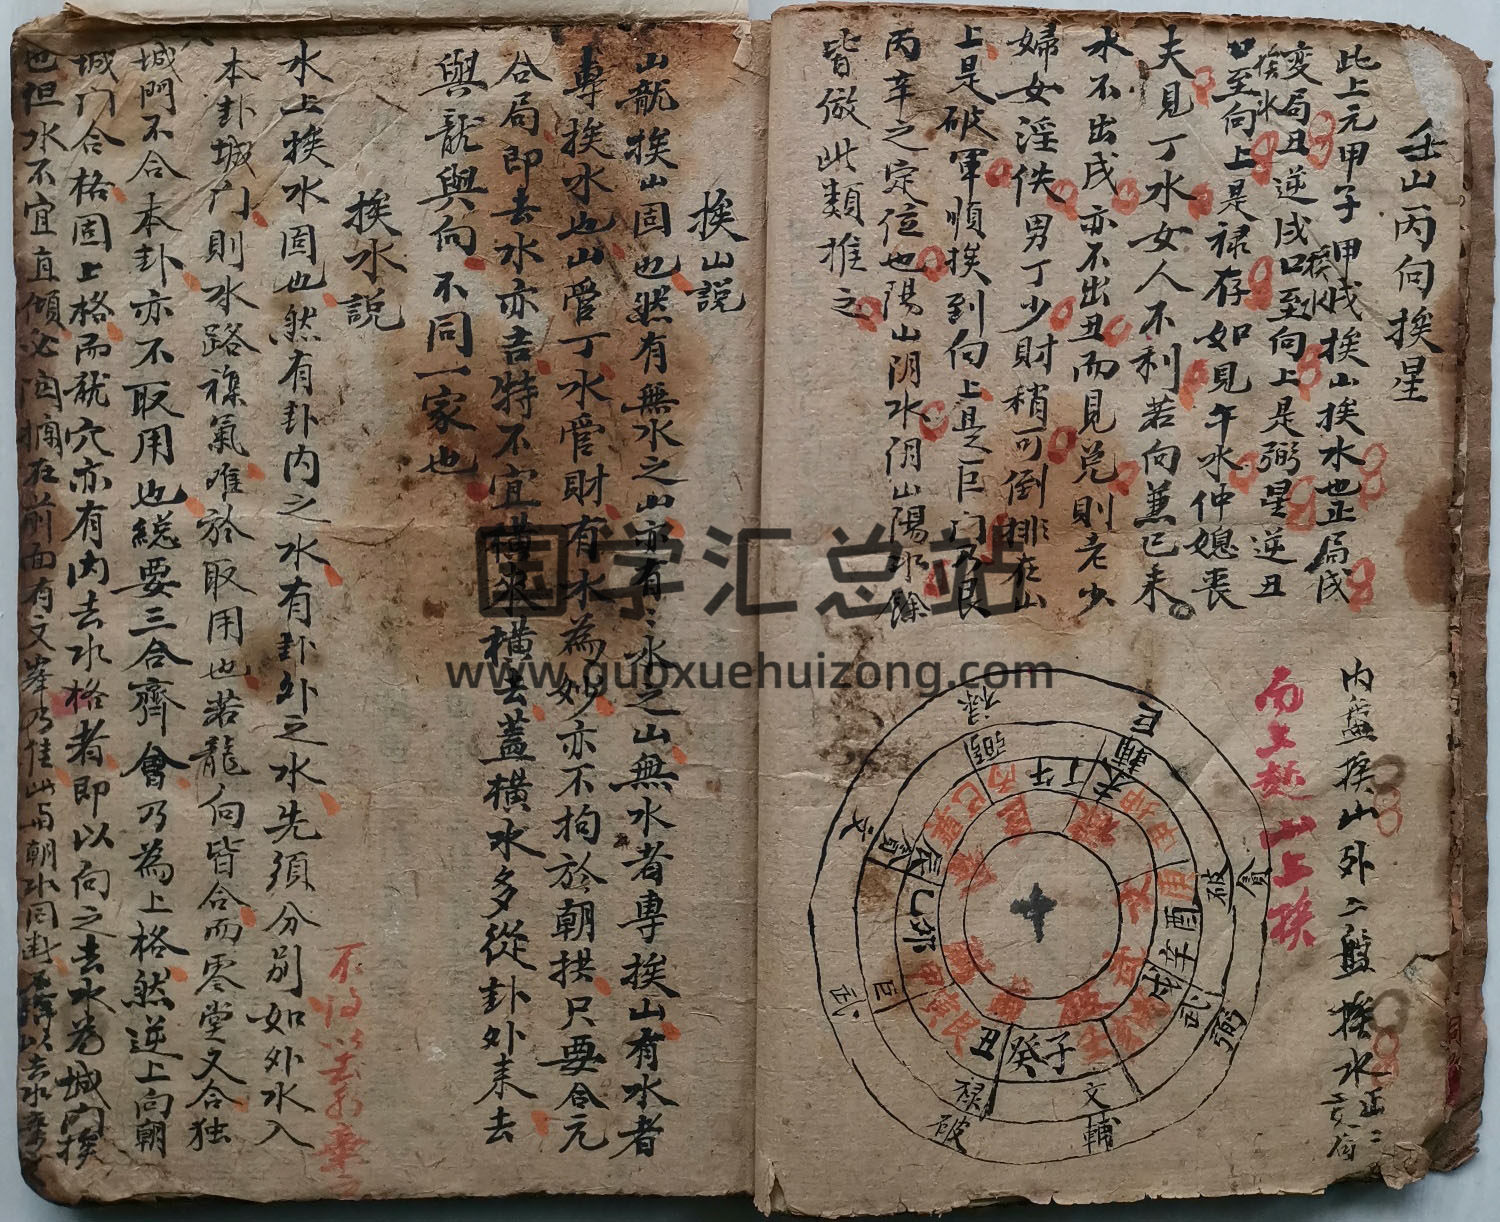 壬山丙向挨星
此上元甲子甲戌挨山挨水也正局戌
变局丑逆戌口至向上是弼星逆丑
挨水
挨水
口至向上是禄存如見午水仲媳丧
夫見丁水女人不利若向兼巳来
水不出戌亦不出丑而見兑則老少
婦女淫佚男丁少財稍可倒排在山
上是破軍順挨到向上是巨门乃艮
丙辛之定位也陽山阴水阴山陽水餘
皆倣此類推之
内盤挨山外二盤挨水
向上起山上挨
禄
弼
巨
輔
文
貪
破
貪
武
巨
武
弼
禄
破
文
輔
丙
午
丁
巳
辰
乙卯
丑
癸子
辛酉
庚
申坤
挨山説
山龍挨山固也然有無水之山亦有有水之山無水者專挨山有水者
專挨水也山管丁水管財有水為妙亦不拘於朝拱只要合元
合局即去水亦吉特不宜橫來橫去蓋橫水多從卦外来去
與龍與向不同一家也
挨水説
水上挨水固也然有卦内之水有卦外之水先須分别如外水入
本卦城门則水路襍氣难於取用也若龍向皆合而零堂又合独
城門不合本卦亦不取用也総要三合齊會乃為上格然逆上向朝
城门合格固上格而龍穴亦有内去水格者即以向之去水為城门挨
也但水不宜直傾必因橋在前面有文峯乃佳此与朝水同断
国学汇总站
www.guoxuehuizong.com